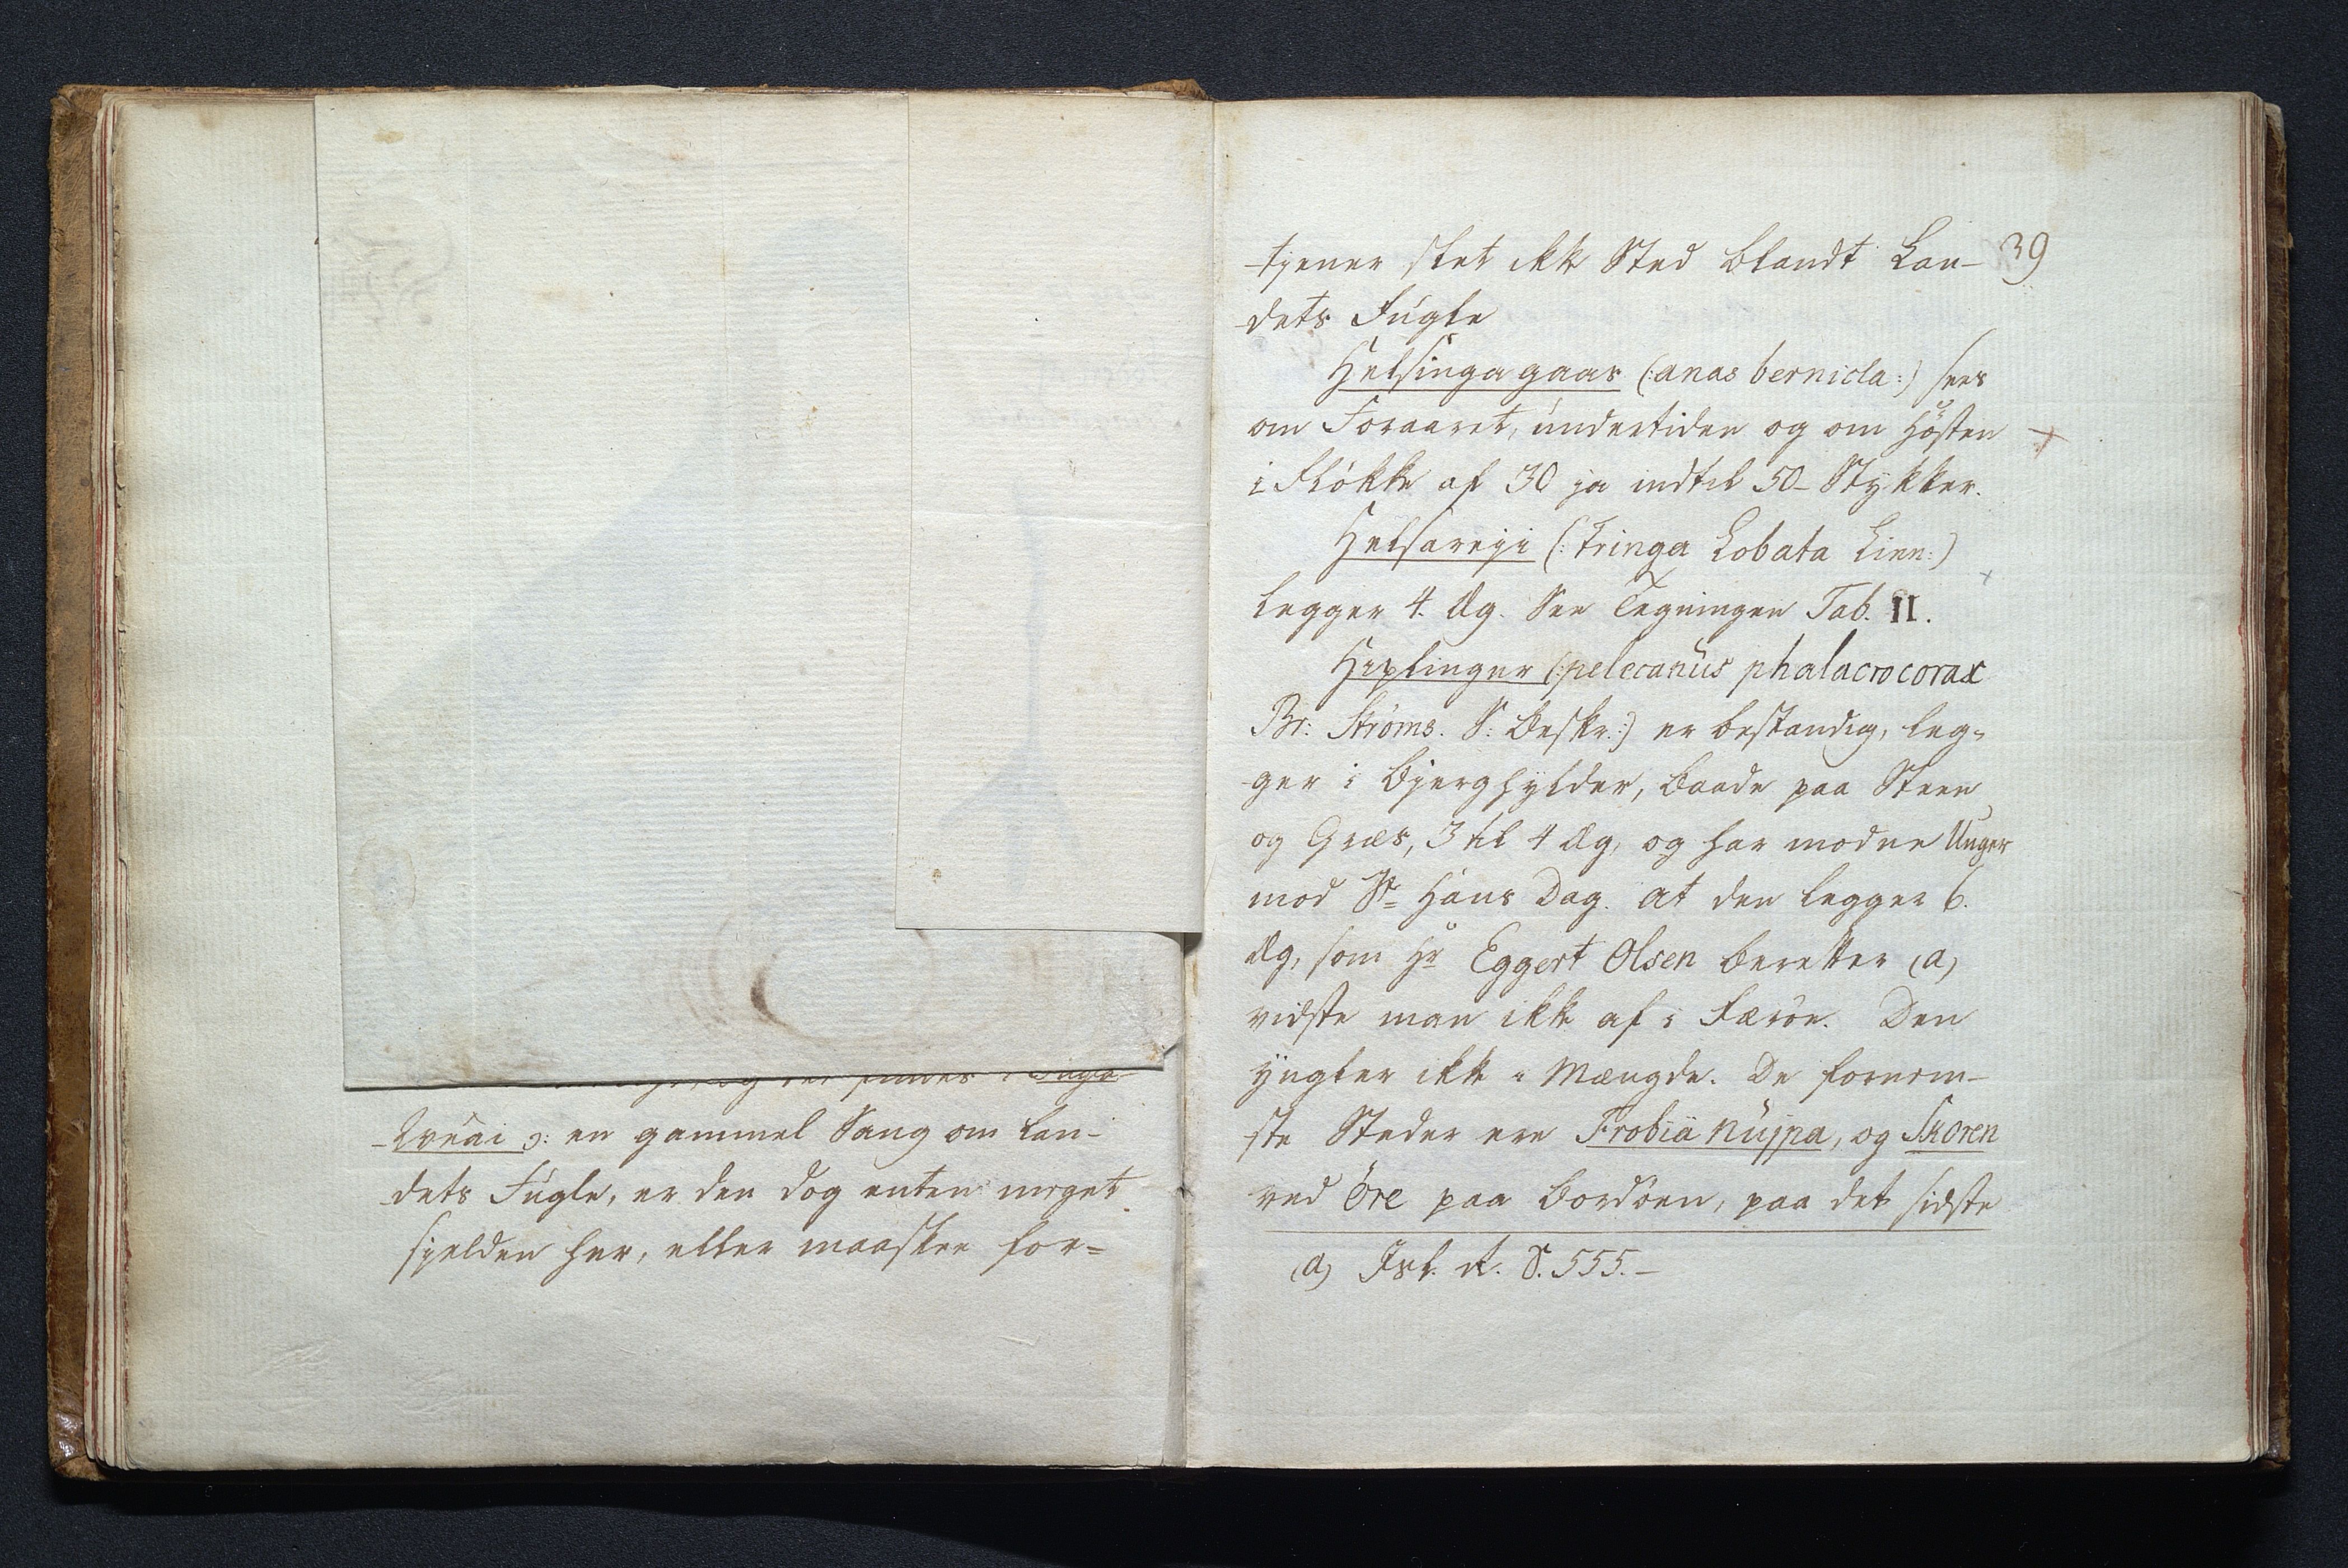 findes i Fuģla
kvêai ɔ: en gammel Sang om Lan-
dets Fugle, er den dog enten meget
sjelden her, eller maaskee for=
39
tjener slet ikke Sted blandt Lan-
dets Fugle
Helsingagaas (: anas bernicla :) sees
om Foraaret, undertiden og om Hösten
i Flokke af 30 ja indtil 50 Stykker.
Helsareji (: Tringa Lobata Linn :)
legger 4. Æg. See Tegningen Tab. II.
Hiplingur (: pelecanus phalacrocorax
Br: Ströms. S: Beskr. :) er bestandig, leg-
ger i Bjerghylder, baade paa Steen
og Græs, 3 til 4 Æg, og har modne Unger
mod St Hans Dag. At den legger 6.
Æg, som Hr Eggert Olsen beretter (a)
vidste man ikke af i Færöe. Den
yngler ikke i Mængde. De fornem-
ste Steder ere Frobiä nujpa, og Skoren
ved Öre paa Bordöen, paa det sidste
(a) Isl. R. S. 555. –